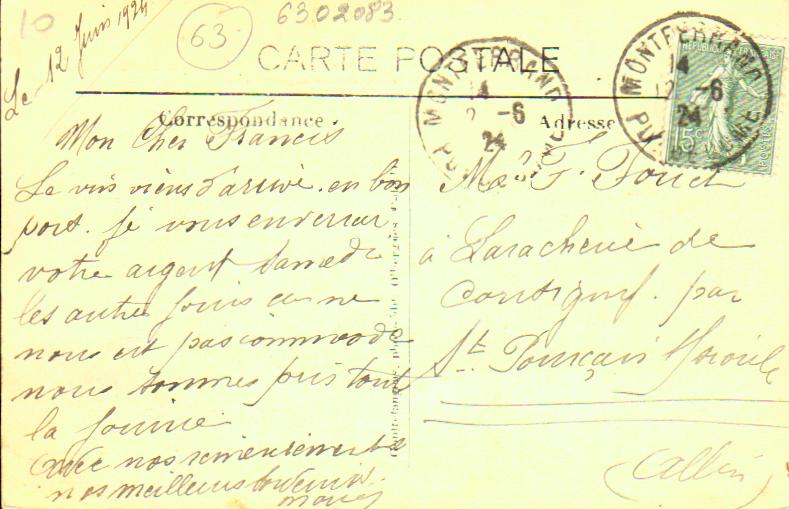 10
63
6302083
Le 12 Juin 1924
CARTE POSTALE
Correspondance
Adresse
MONTFERRAND
14
12 -6
24
PUY DE DOME
MONTFERRAND
14
-6
24
PUY DE DOME
REPUBLIQUE FRANÇAISE
15c
POSTES
Mon Cher Francis
Le vin viens d'arivé en bon
port. je vous enverrai
votre argent samedi
les autre jours ca ne
nous est pas commode
nous sommes pris tout
la journée
avec nos remerciements
nos meilleurs souvenir
Mr F.
à de
par
St Pourçain s/Sioule
(Allier)